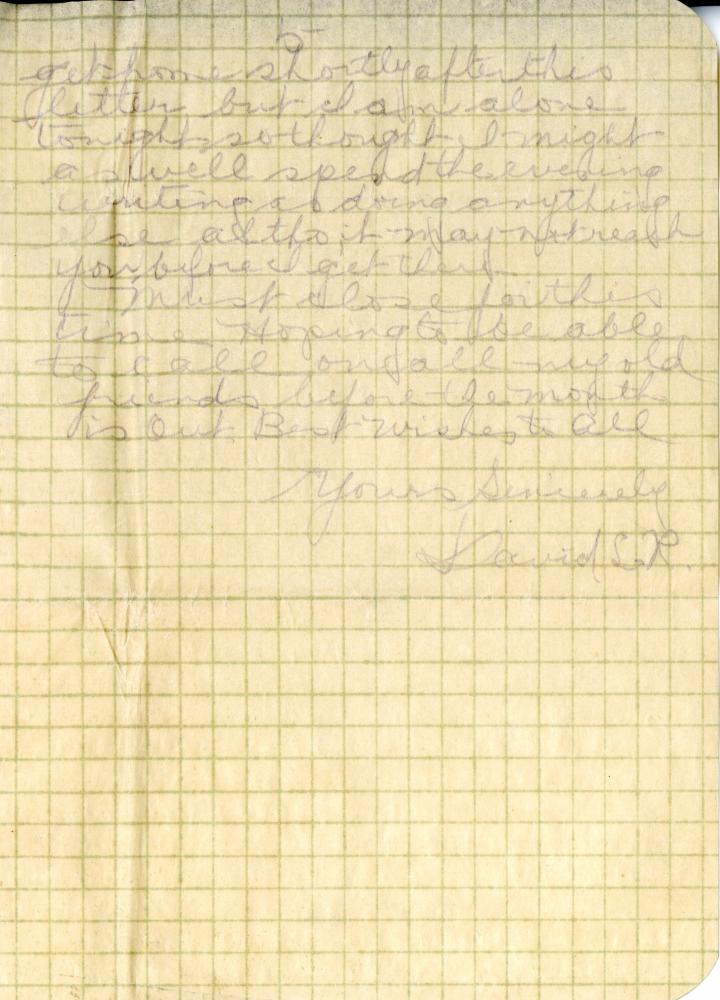 5
get home shortly after this
letter but I am alone
tonight so thought I might
as well spend the evening
writing as doing anything
else altho it may not reach
you before I get there
Must close for this
time Hoping to be able
to call on all my old
friends before the month
is Out Best wishes to all
Yours Sincerely
David S.R.